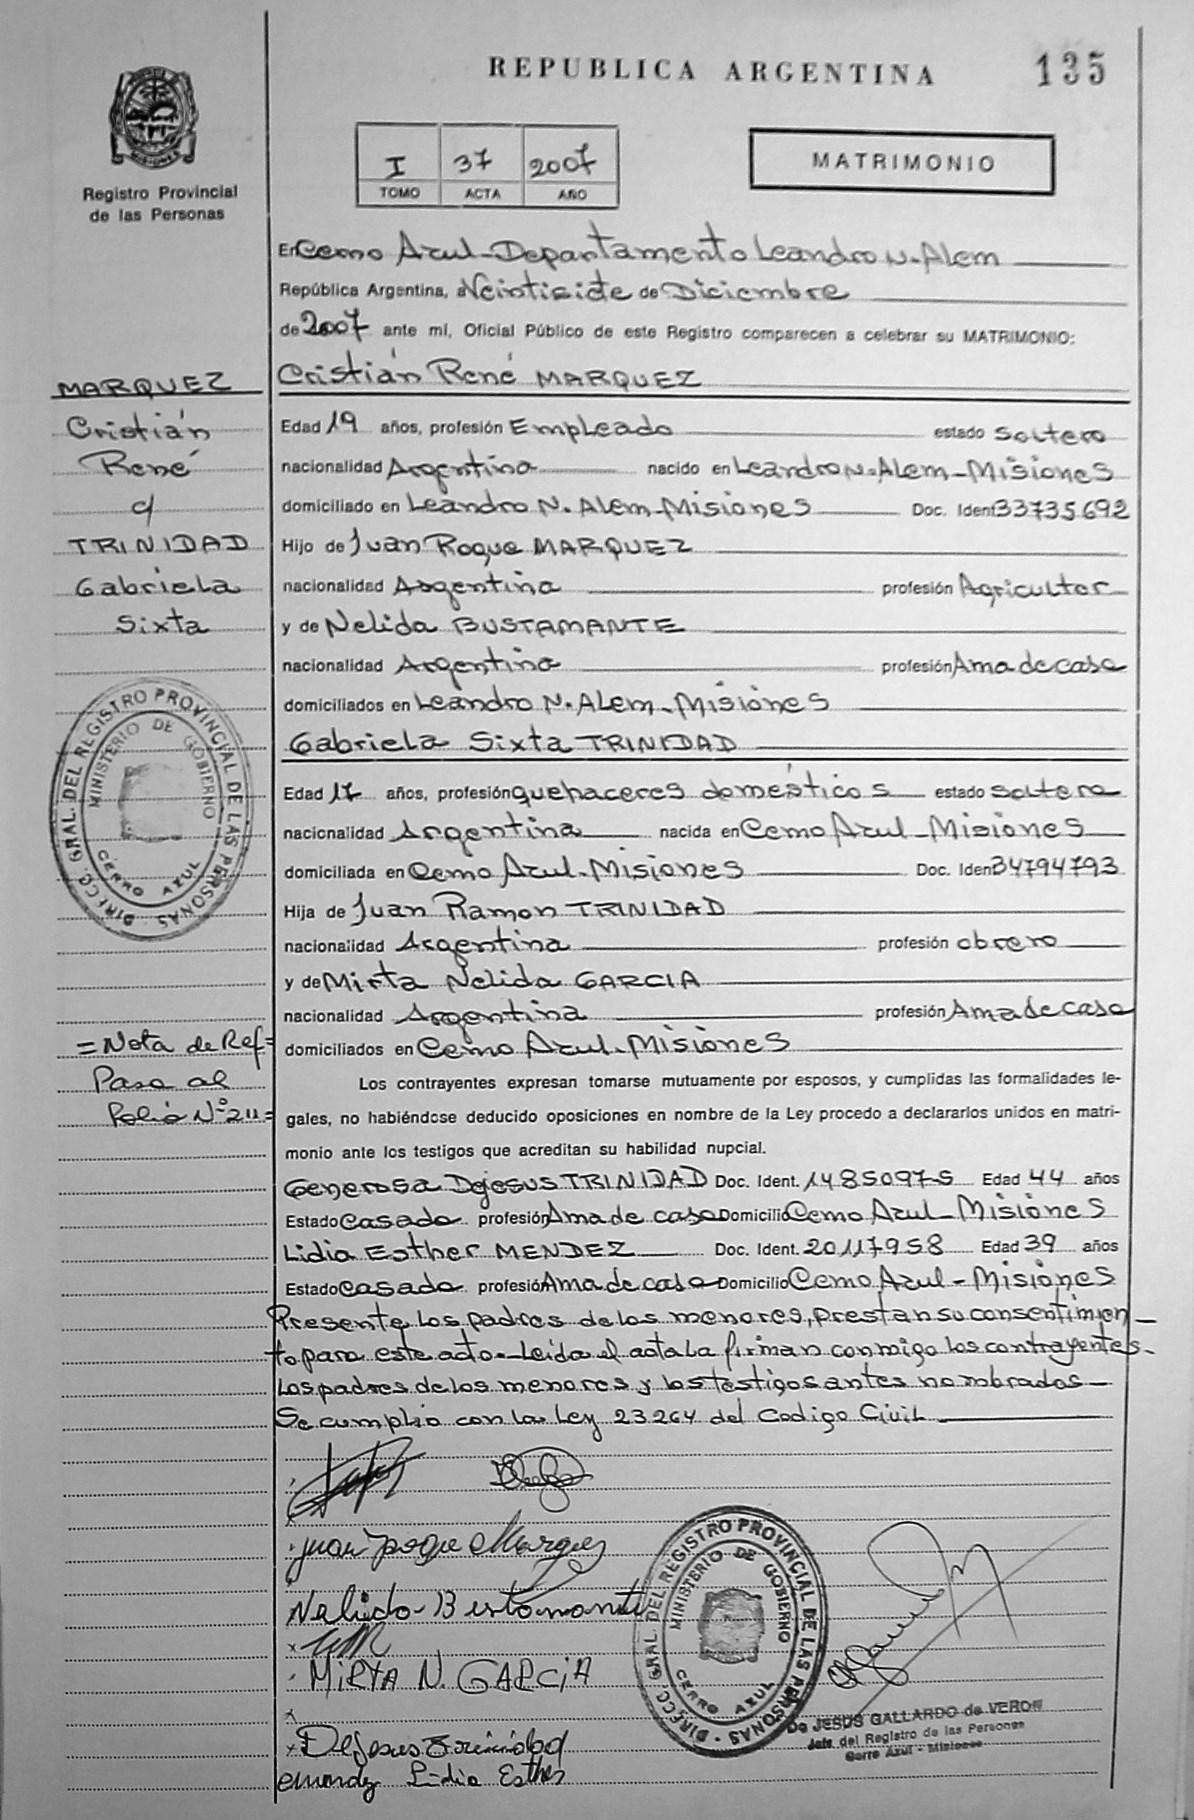 REPUBLICA ARGENTINA 135
MISIONES
Registro Provincial
de las Personas
I 37 2007
TOMO ACTA AÑO
MATRIMONIO
En Cerro Azul - Departamento Leandro N. Alem
República Argentina, a Veintisiete de Diciembre
de 2007 ante mí, Oficial Público de este Registro comparecen a celebrar su MATRIMONIO:
Cristián René MARQUEZ
Edad 19 años, profesión Empleado estado soltero
nacionalidad Argentina nacido en Leandro N. Alem - Misiones
domiciliado en Leandro N. Alem - Misiones Doc. Ident 33735692
Hijo de Juan Roque MARQUEZ
nacionalidad Argentina profesión Agricultor
y de Nelida BUSTAMANTE
nacionalidad Argentina profesión Ama de casa
domiciliados en Leandro N. Alem - Misiones
Gabriela Sixta TRINIDAD
Edad 17 años, profesión quehaceres domésticos estado soltera
nacionalidad Argentina nacida en Cerro Azul - Misiones
domiciliada en Cerro Azul - Misiones Doc. Iden 34794793
Hija de Juan Ramon TRINIDAD
nacionalidad Argentina profesión obrero
y de Mirta Nelida GARCIA
nacionalidad Argentina profesión Ama de casa
domiciliados en Cerro Azul - Misiones
Los contrayentes expresan tomarse mutuamente por esposos, y cumplidas las formalidades le-
gales, no habiéndose deducido oposiciones en nombre de la Ley procedo a declararlos unidos en matri-
monio ante los testigos que acreditan su habilidad nupcial.
Generosa Dejesus TRINIDAD Doc. Ident. 14850975 Edad 44 años
Estado Casada profesión Ama de casa Domicilio Cerro Azul - Misiones
Lidia Esther MENDEZ Doc. Ident. 20117958 Edad 39 años
Estado Casada profesión Ama de casa Domicilio Cerro Azul - Misiones
Presente los padres de los menores, prestan su consentimien-
to para este acto - Leída el acta la firman conmigo los contrayentes -
Los padres de los menores y los testigos antes nombrados -
Se cumplio con la Ley 23264 del Codigo Civil
MARQUEZ
Cristián
René
c/
TRINIDAD
Gabriela
Sixta
DIRECC. GRAL. DEL REGISTRO PROVINCIAL DE LAS PERSONAS
MINISTERIO DE GOBIERNO
CERRO AZUL
= Nota de Ref =
Pasa al
Folio Nº 211 =
Juan Roque Marquez
Nelida Bustamante
MIRTA N. GARCIA
Dejesus Trinidad
Mendez Lidia Esther
DIRECC. GRAL. DEL REGISTRO PROVINCIAL DE LAS PERSONAS
MINISTERIO DE GOBIERNO
CERRO AZUL
De JESUS GALLARDO de VERON
Jefe del Registro de las Personas
Cerro Azul - Misiones